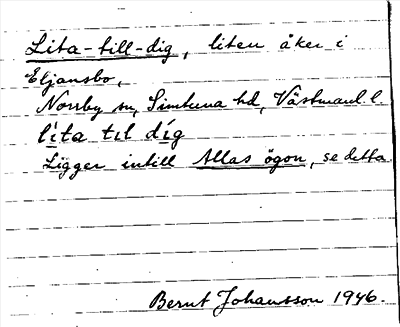 Lita-till-dig, liten åker i
Eljansbo,
Norrby sn, Simtuna hd, Västmanl. l.
lita til díg
Ligger intill Allas ögon, se detta.
Bernt Johansson 1946.